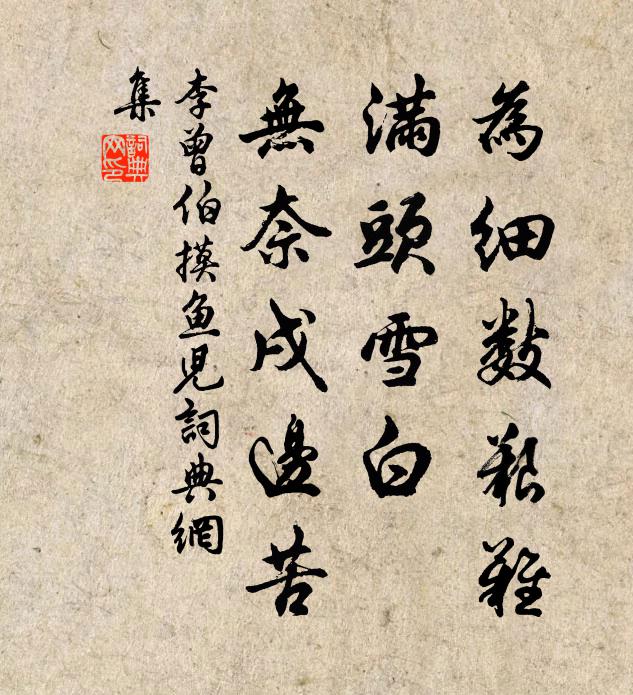 為細數艱難
滿頭雪白
無奈戍邊苦
李曾伯摸魚兒詞典網
集
詞典